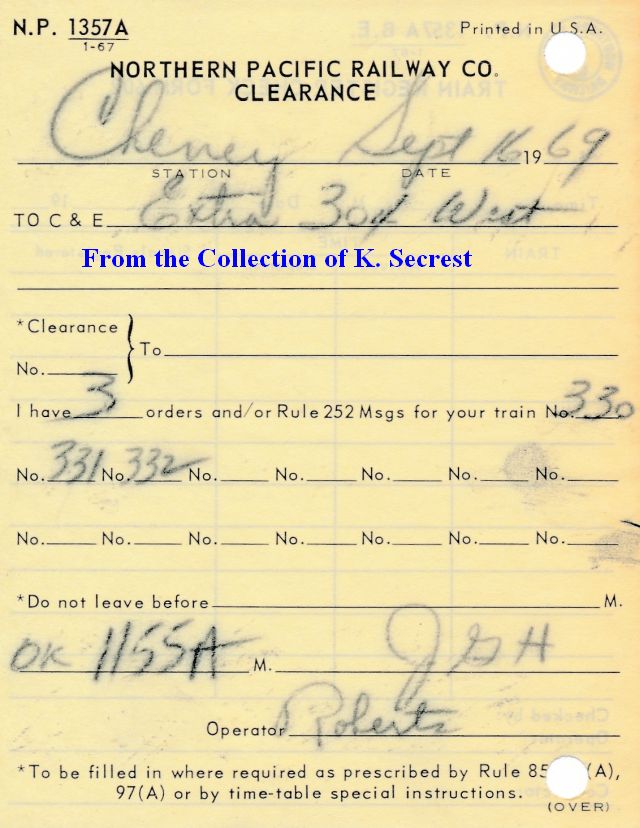 N.P. 1357A Printed in U.S.A.
1-67
NORTHERN PACIFIC RAILWAY CO.
CLEARANCE
Cheney Sept 16 1969
STATION DATE
TO C & E Extra 301 West
From the Collection of K. Secrest
*Clearance
No. To
I have 3 orders and/or Rule 252 Msgs for your train No. 330
No. 331 No. 332 No. No. No. No. No.
No. No. No. No. No. No. No.
*Do not leave before M.
OK 1155A M. JGH
Operator Roberts
*To be filled in where required as prescribed by Rule 85 (A),
97(A) or by time-table special instructions.
(OVER)